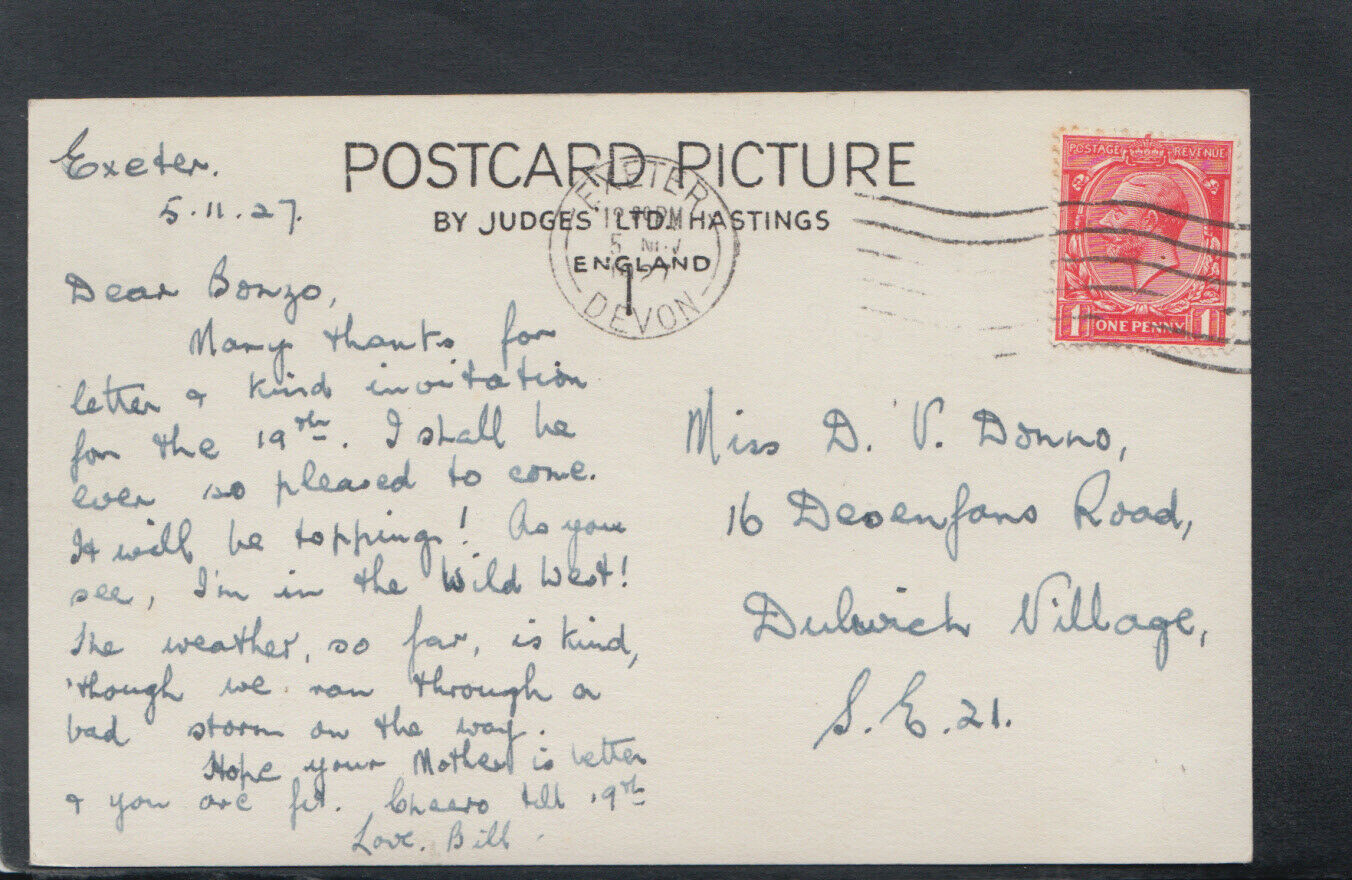 Exeter.
5.11.27.
POSTCARD PICTURE
BY JUDGES LTD. HASTINGS
ENGLAND
EXETER
5 NOV
DEVON
POSTAGE REVENUE
1 ONE PENNY 1
Dear Bonzo,
Many thanks for
letter & kind invitation
for the 19th. I shall be
ever so pleased to come.
It will be topping! As you
see, I'm in the Wild West!
The weather, so far, is kind,
'though we ran through a
bad storm on the way.
Hope your Mother is better
& you are fit. Cheero till 19th
Love. Bill.
Miss D. V. Donno,
16 Desenfans Road,
Dulwich Village,
S.E.21.